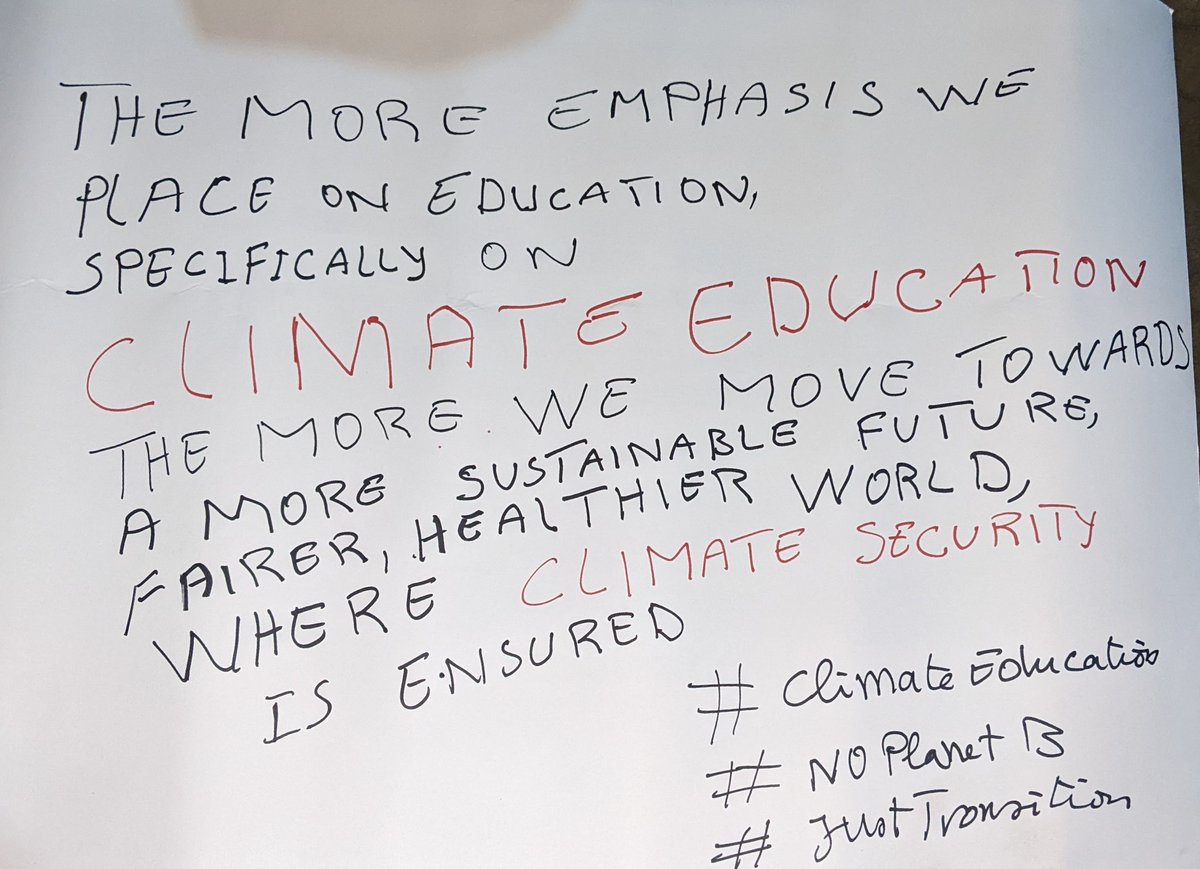 THE MORE EMPHASIS WE
PLACE ON EDUCATION,
SPECIFICALLY ON
CLIMATE EDUCATION
THE MORE WE MOVE TOWARDS
A MORE SUSTAINABLE FUTURE,
FAIRER, HEALTHIER WORLD,
WHERE CLIMATE SECURITY
IS ENSURED
# Climate Education
# NO Planet B
# JustTransition